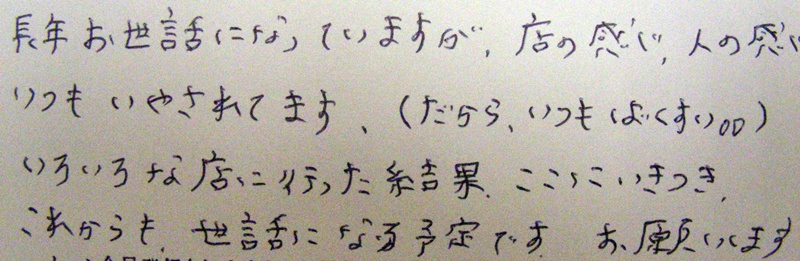 長年お世話になっていますが、店の感じ、人の感じ
いつもいやされてます、(だから、いつもばくすい。。)
いろいろな店に行った結果、ここにいきつき、
これからも、世話になる予定です お願いします